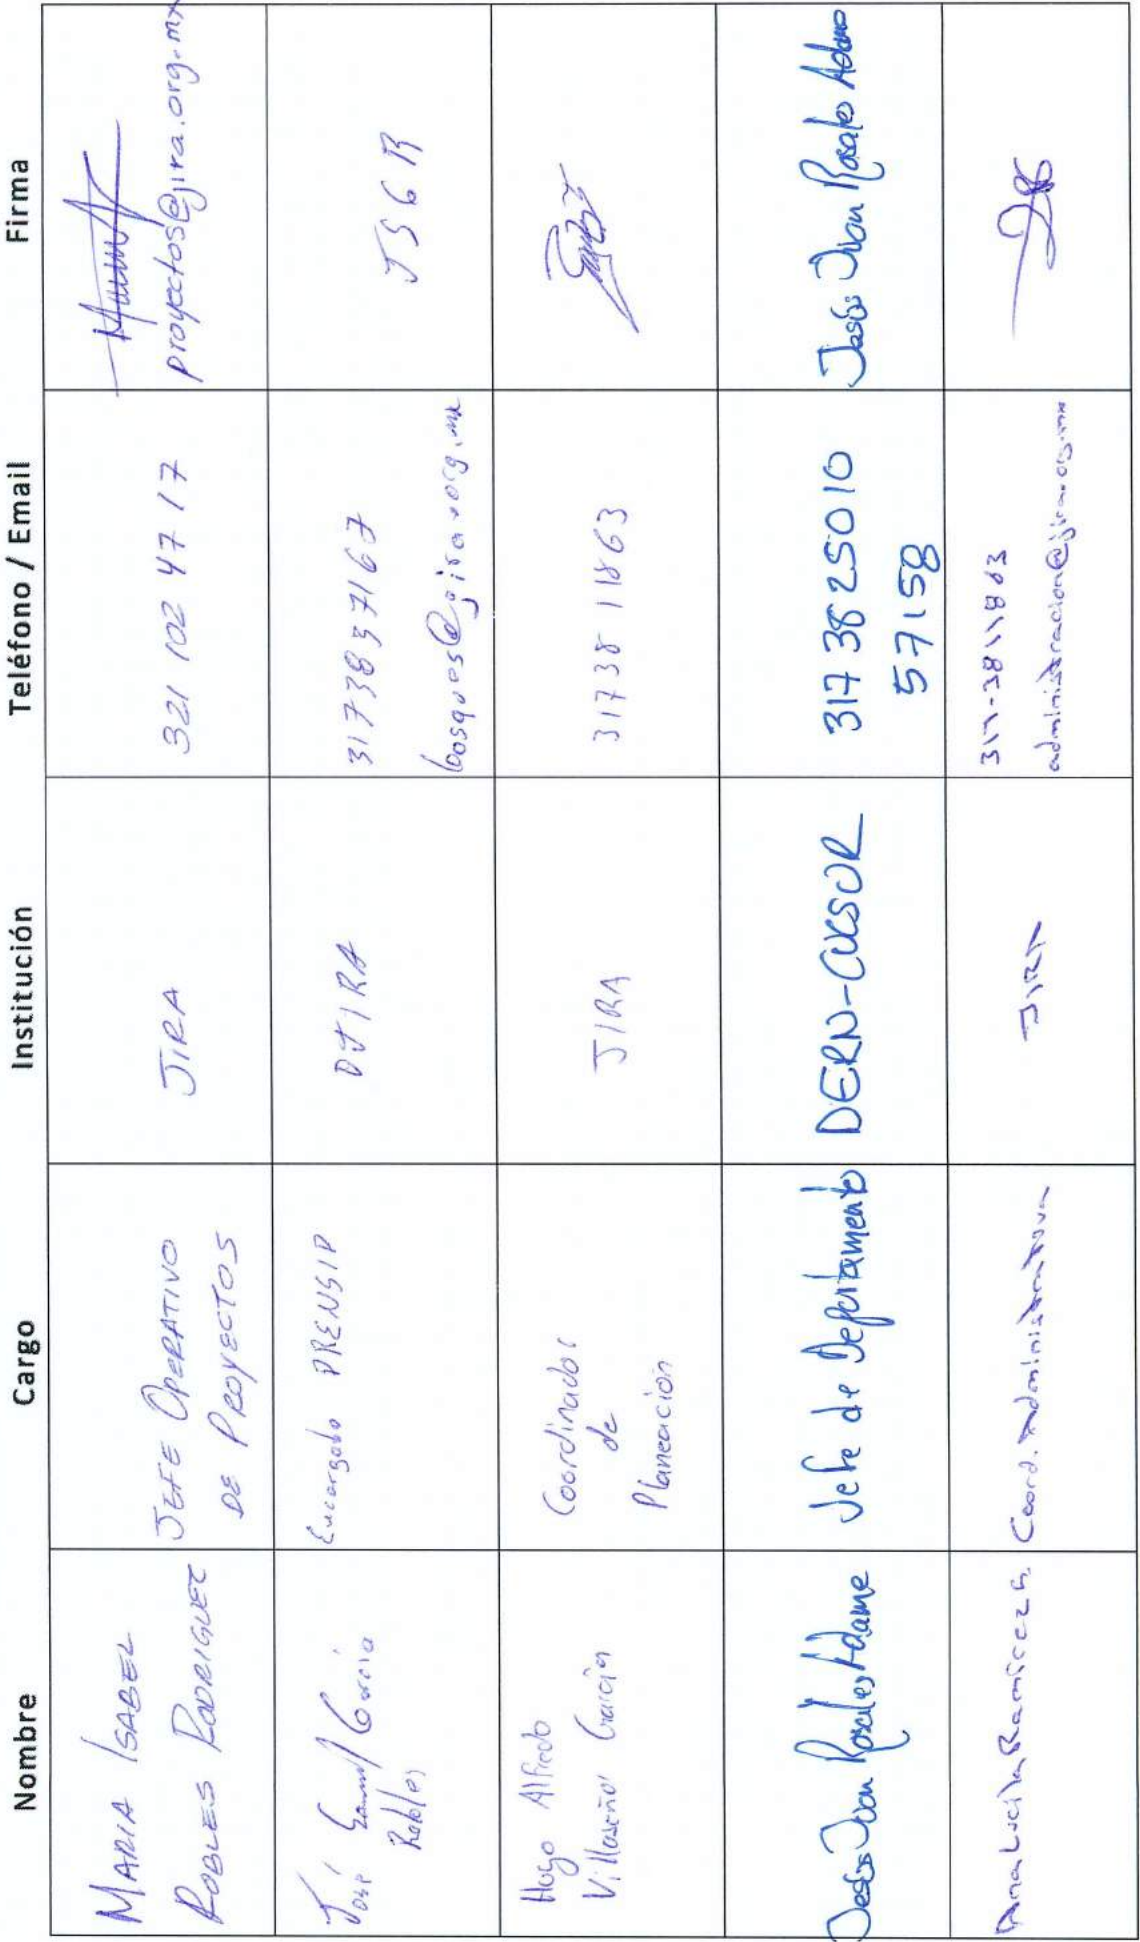 Nombre
Cargo
Institución
Teléfono / Email
Firma
MARIA ISABEL
ROBLES RODRIGUEZ
JEFE OPERATIVO
DE PROYECTOS
JIRA
321 102 47 17
proyectos@jira.org.mx
José Samuel García
Robles
Encargado PRENSIP
DJIRA
317 38 3 7167
bosques@jira.org.mx
JSGR
Hugo Alfredo
Villaseñor García
Coordinador
de
Planeación
JIRA
31738 11863
Jesús Juan Rosales Adame
Jefe de Departamento
DERN-CUCSUR
317 38 25010
57158
Jesús Juan Rosales Adame
Ana Lucila Ramírez G.
Coord. Administrativa
JIRA
317-3811863
administracion@jira.org.mx